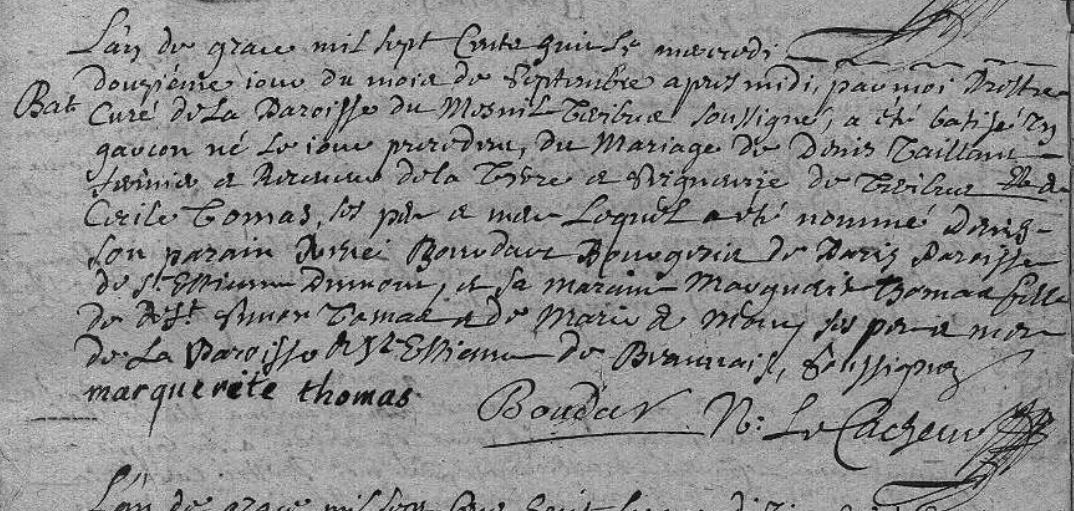 L'an de grace mil sept Cents quinze mercredi
douziéme iour du mois de Septembre apres midi, par moi Prestre
Bat Curé de La Paroisse du Mesnil Theribus soussigné, a été batisé un
garcon né le iour precedent, du Mariage de Denis Taillant
fermier et Receveur de la Terre et Seigneurie de Theribus & de
Cecile Tomas, ses per et mere Lequel a eté nommé Denis
son parain René Boudart Bourgeois de Paris Paroisse
de St Estienne Dumont, et sa maraine Marguerite Thomas fille
de St Simon Tomas et de Marie de ses per et mere
de La Paroisse de St Estienne de Beauvais, Soussignez
marquerite thomas
Boudar N: Le Cacheur
L'an de grace mil sept Cens